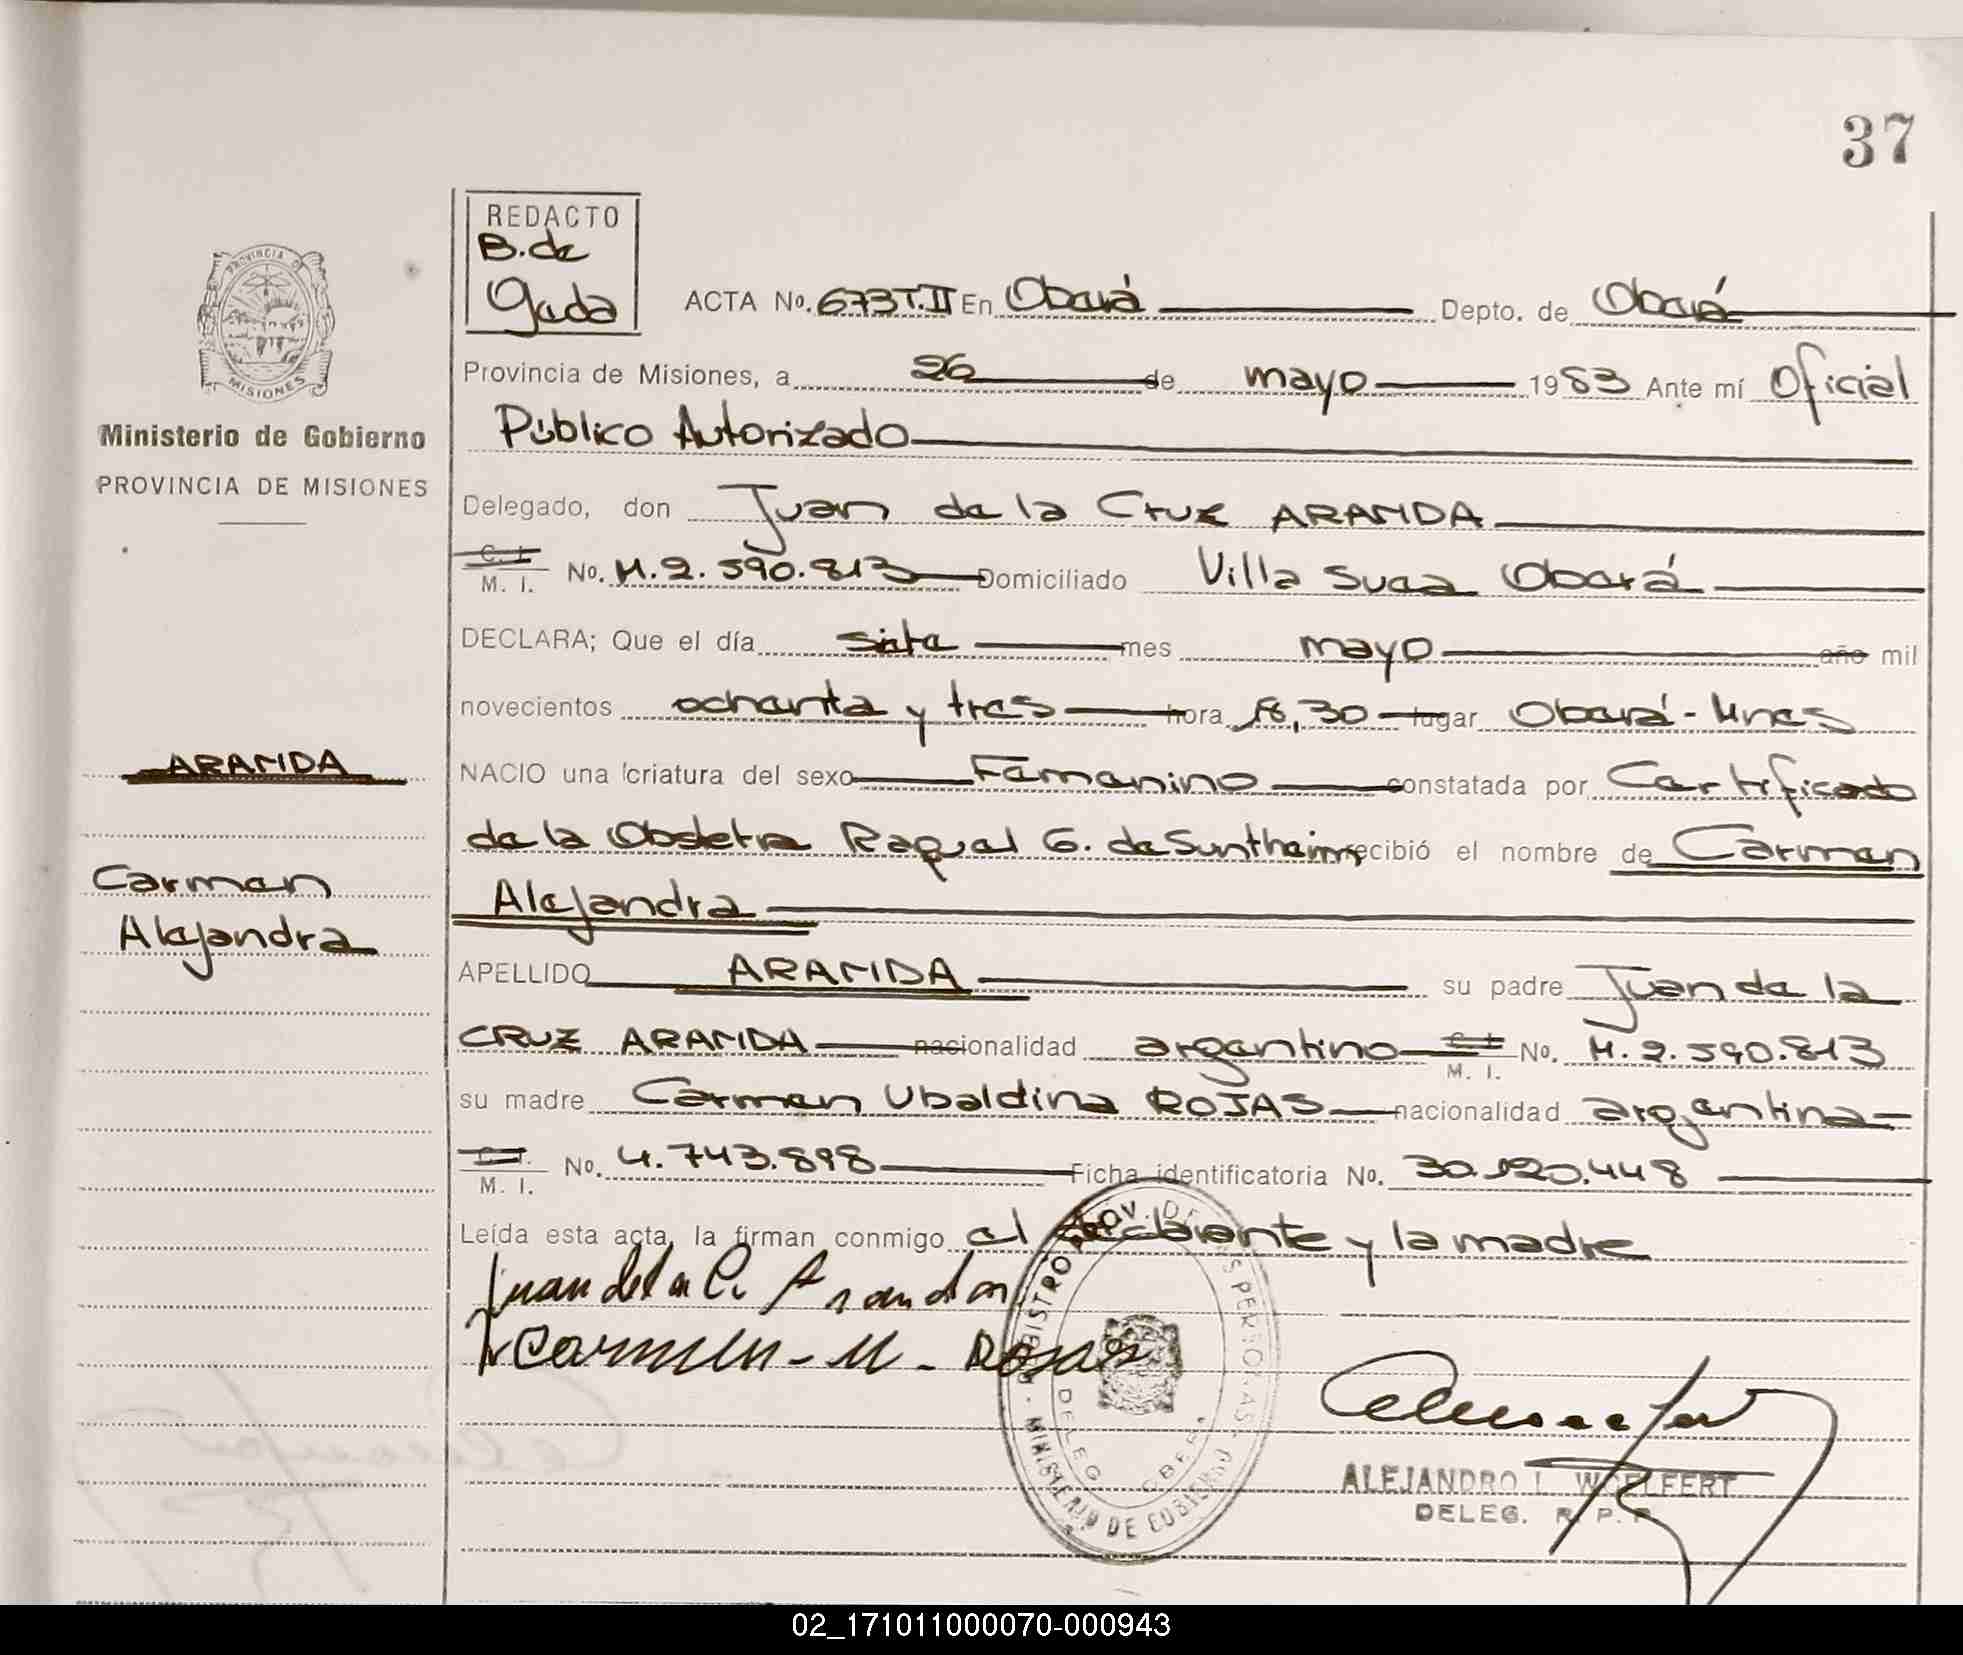 37
REDACTO
B. de
Gada
PROVINCIA D
MISIONES
Ministerio de Gobierno
PROVINCIA DE MISIONES
ACTA No. 673 T. II En Oberá Depto. de Oberá
Provincia de Misiones, a 26 de mayo 1983 Ante mí Oficial
Público Autorizado
Delegado, don Juan de la Cruz ARANDA
C. I.
M. I. No. M. 2.590.813 Domiciliado Villa Oberá
DECLARA; Que el día siete mes mayo año mil
novecientos ochenta y tres hora 18,30 lugar Oberá - Mnes
NACIO una criatura del sexo Femenino constatada por Certificado
de la Obstetra Raquel G. de Suntheim recibió el nombre de Carmen
Alejandra
APELLIDO ARANDA su padre Juan de la
CRUZ ARANDA nacionalidad argentino C. I. No. M. 2.590.813
M. I.
su madre Carmen Ubaldina ROJAS nacionalidad argentina
C. I.
M. I. No. 4.743.898 Ficha identificatoria No. 30.120.448
Leída esta acta, la firman conmigo el declarante y la madre
ARANDA
Carmen
Alejandra
Juan de la C. Aranda
Carmen - U - Rojas
REGISTRO PROV. DE LAS PERSONAS
MINISTERIO DE GOBIERNO
DELEG. OBERA
ALEJANDRO L. WOELFERT
DELEG. R. P. P.
02_171011000070-000943